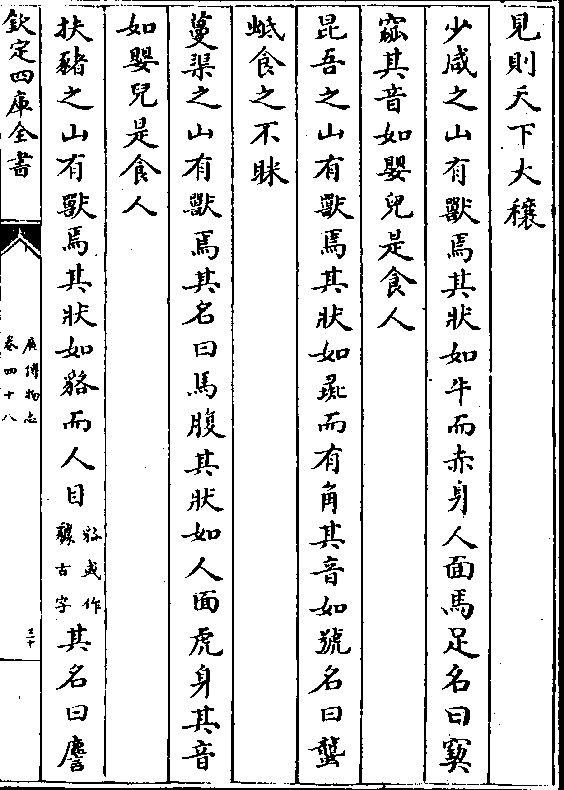 見則天下大穰
少咸之山有獸焉其狀如牛而赤身人面馬足名曰窫
窳其音如嬰兒是食人
昆吾之山有獸焉其狀如彘而有角其音如號名曰蠪
蚳食之不眯
蔓渠之山有獸焉其名曰馬腹其狀如人面虎身其音
如嬰兒是食人
扶豬之山有獸焉其狀如貉而人目貉或作古字其名曰䴦
欽定四庫全書
廣博物志
卷四十八
三十